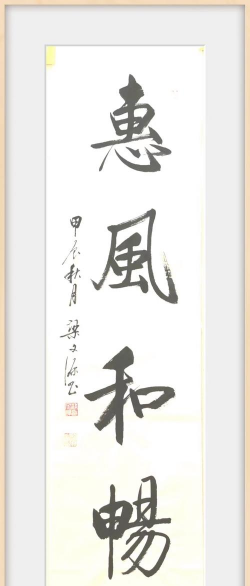 惠風和暢
甲辰秋月 梁文源书